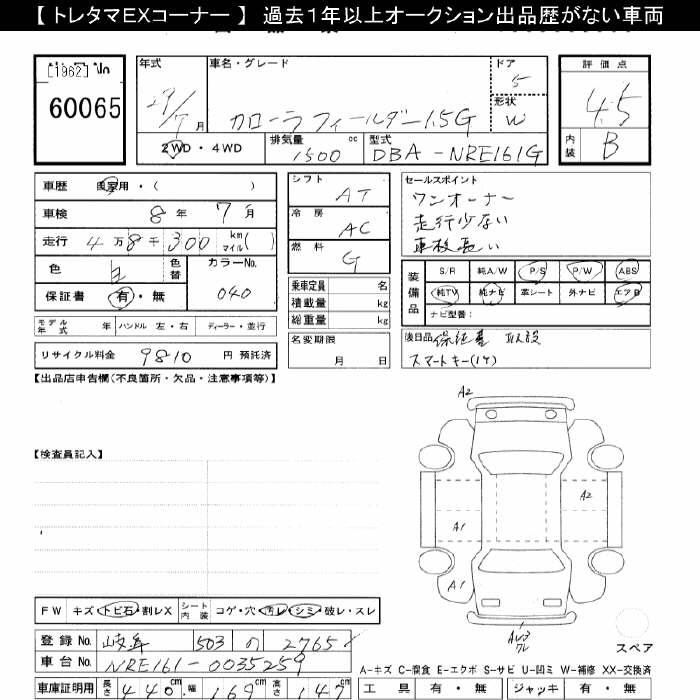 【トレタマEXコーナー】 過去1年以上オークション出品歴がない車両
60065
年式 29/7月
車名・グレード カローラフィールダー1.5G
ドア 5
形状 W
評価点 4.5
内装 B
2WD・4WD 排気量 1500 cc 型式 DBA-NRE161G
車歴 自家用・( )
車検 8年 7月
走行 4万8千300 km マイル( )
色 白 色替 カラーNo. 040
保証書 有・無
モデル年式 年 ハンドル 左・右 ディーラー・並行
リサイクル料金 9810 円 預託済
シフト AT
冷房 AC
燃料 G
乗車定員 名
積載量 kg
総重量 kg
名変期限 月 日
セールスポイント
ワンオーナー
走行少ない
車検長い
装備品 S/R 純A/W P/S P/W ABS
純TV 純ナビ 革シート 外ナビ エアB
ナビ型番:
後日品 保証書 取説
スマートキー(1ケ)
【出品店申告欄(不良箇所・欠品・注意事項等)】
【検査員記入】
A2
A2
A1
A1
スペア
FW キズ・トビ石・割レX シート内装 コゲ・穴・汚レ・シミ・破レ・スレ
登録No. 岐阜 503 の 2765
車台No. NRE161-0035259
車庫証明用 長さ 440cm 幅 169cm 高さ 147cm
A-キズ C-腐食 E-エクボ S-サビ U-凹ミ W-補修 XX-交換済
工具 有・無 ジャッキ 有・無